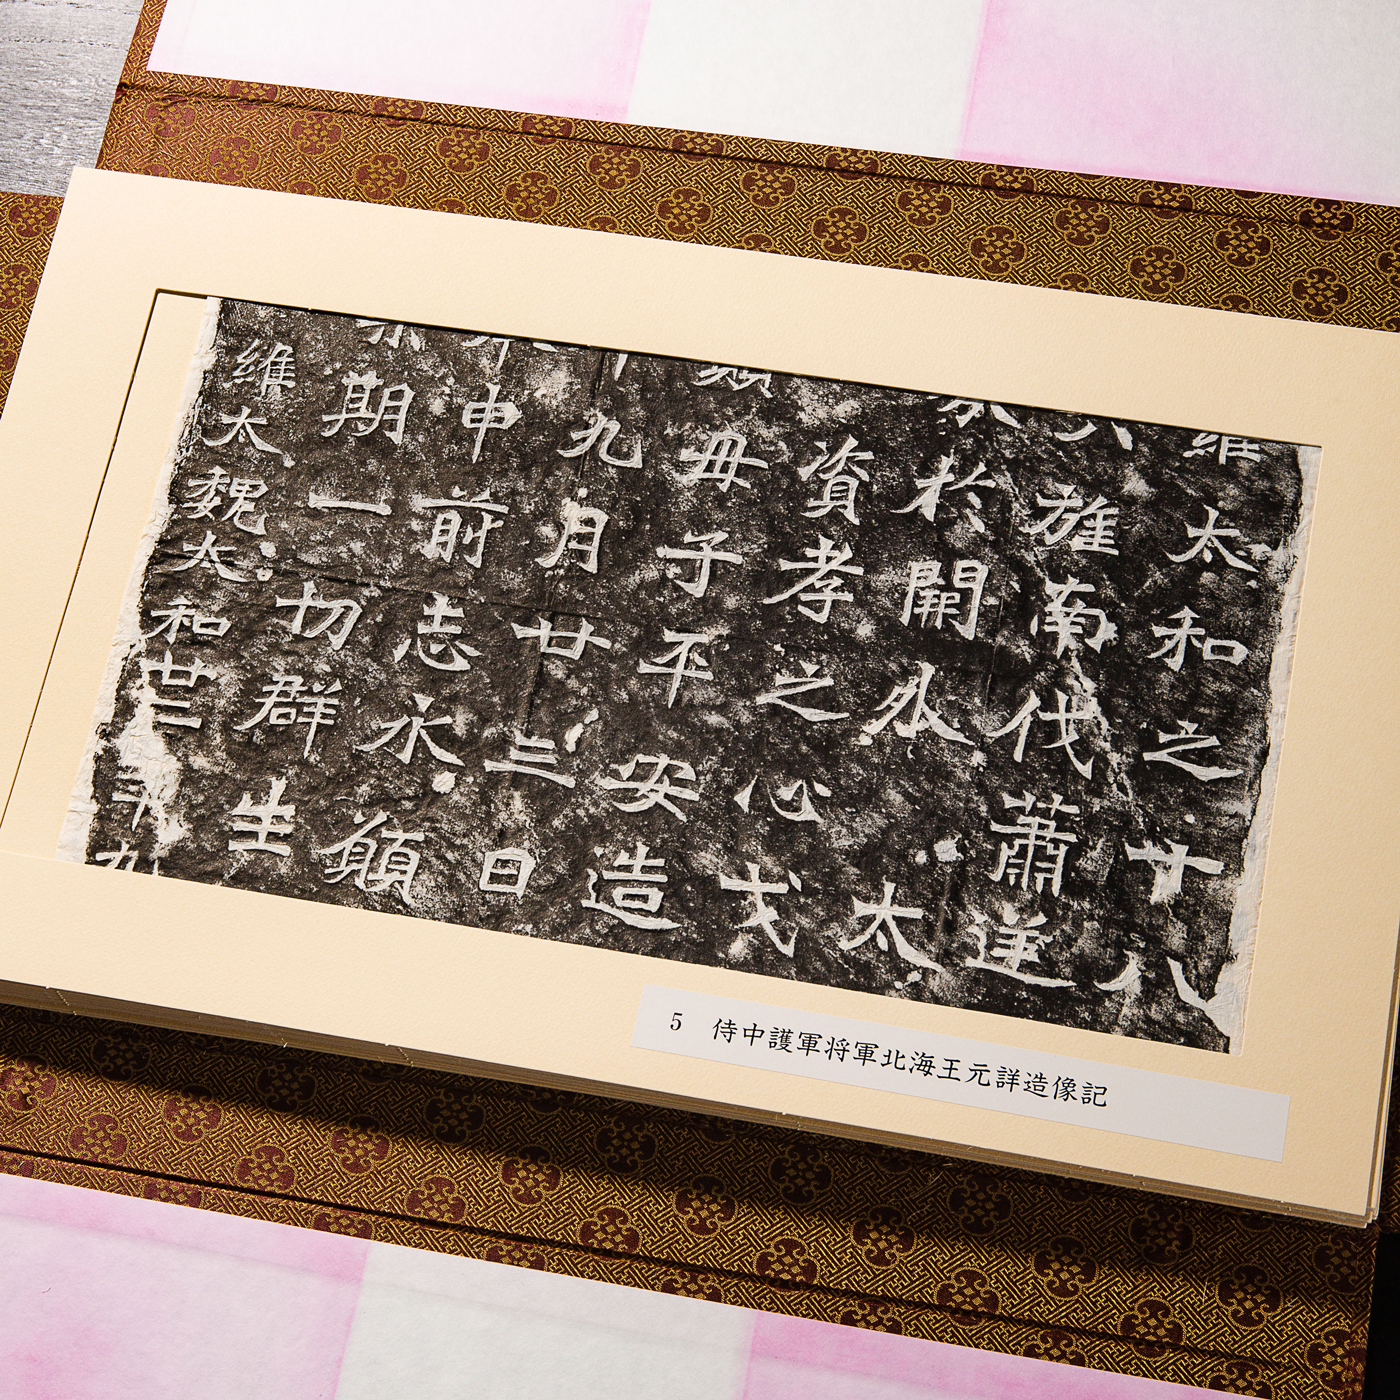 維太和之十八
六旌南伐蕭逆
分於閞外太
資孝之心戈
願母子平安造
九月廿三日
申前志永願
期一切群生
維太魏太和廿二年九
5 侍中護軍将軍北海王元詳造像記